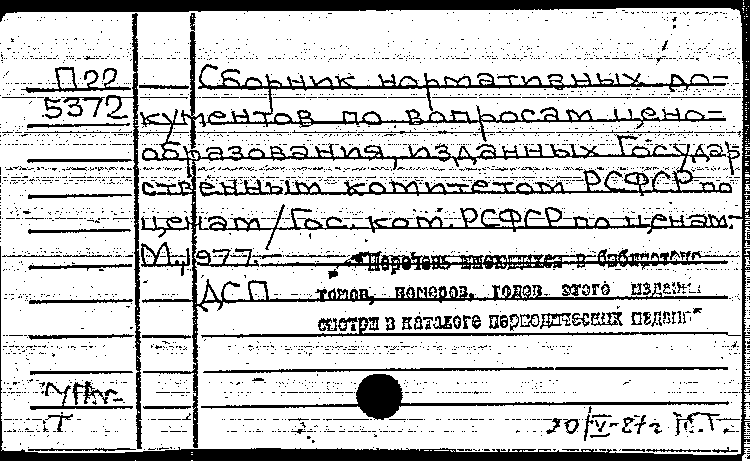 П22 Сборник нормативных до=
5372 кументов по вопросам цено=
образования, изданных Государ
ственным комитетом РСФСР по
ценам / Гос. ком. РСФСР по ценам.-
М., 1977.-
"Перечень имеющихся в библиотеке
ДСП томов, номеров, годов этого издания
смотри в каталоге периодических изданий"
20/V-87г М.Т.